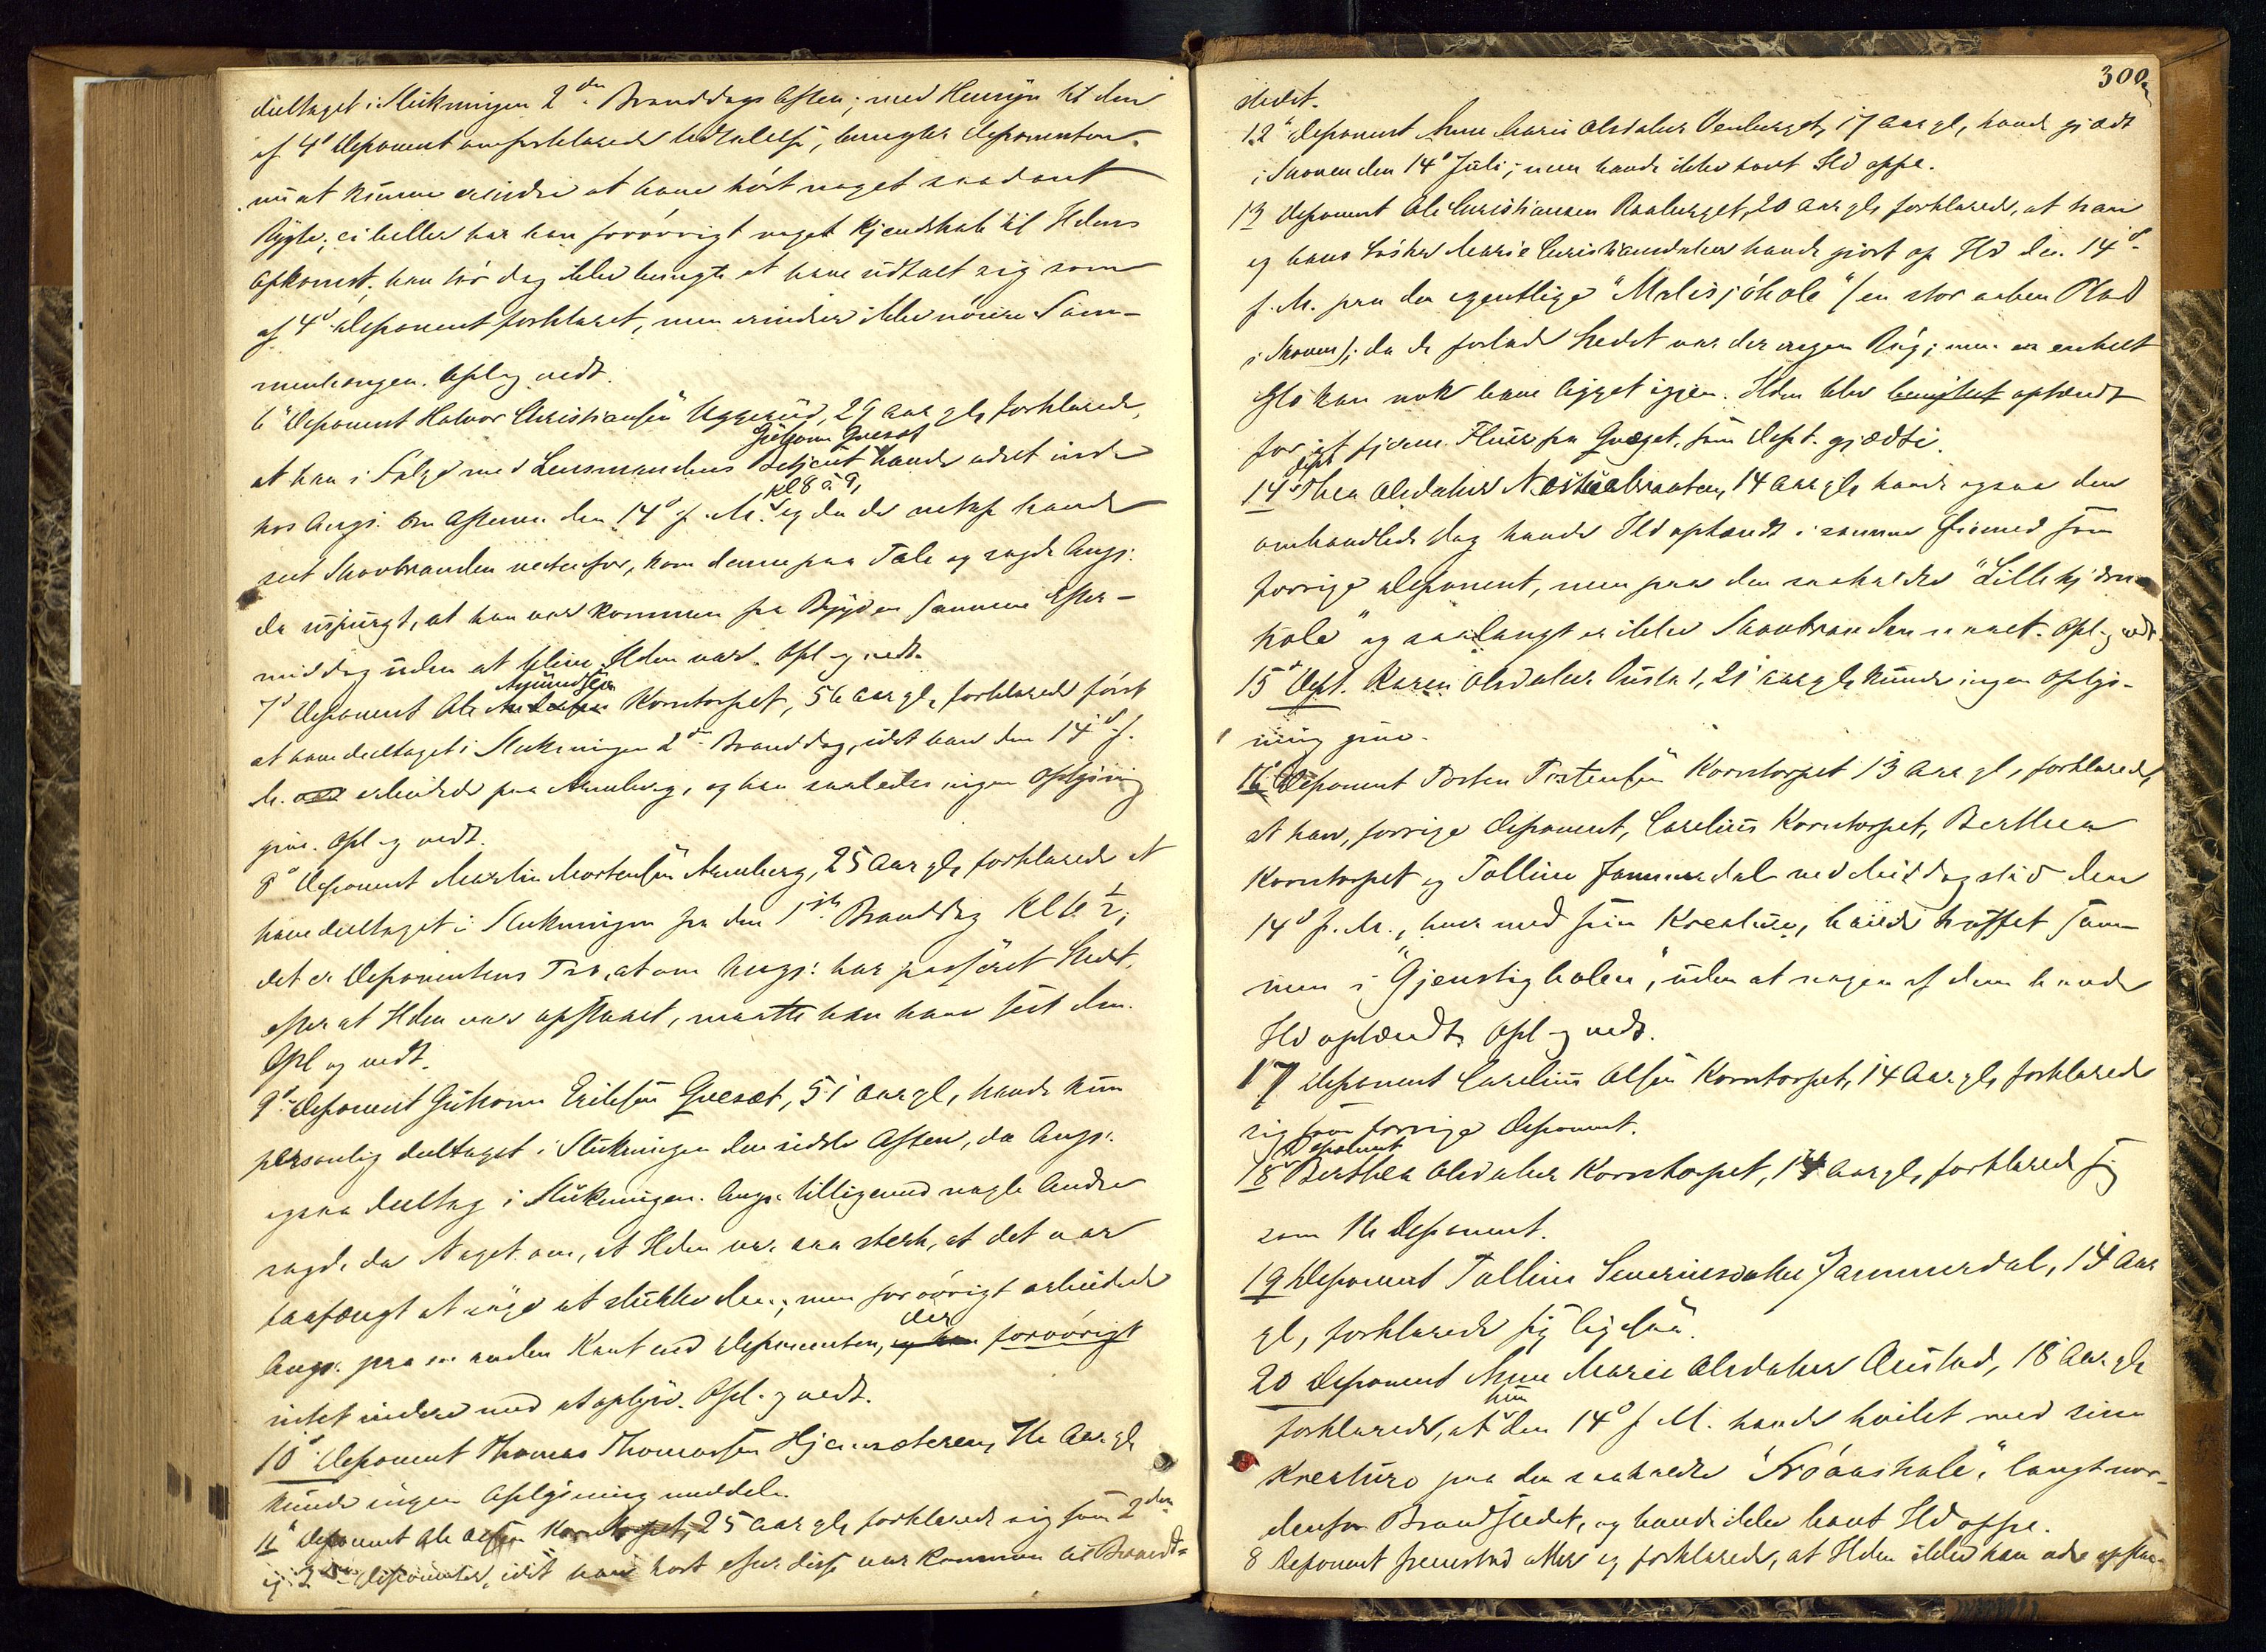 deeltaget i Slukningen 2den Branddags Aften; med Hensyn til den
af 4de Deponent omforklarede Udtalelse, benegter Deponenten
nu at kunne erindre at have hørt noget saadant
Rygte; ei heller har han forøvrigt noget Kjendskab til Ildens
Opkomst; han tør dog ikke benegte at have udtalt sig som
af 4de Deponent forklaret, men erindrer ikke nøiere Sam-
menhengen. Opl og vedt.
6te Deponent Halvor Christiansen Uggerud, 29 Aar gl, forklarede,
at han i Følge med Lensmandens Betjent Guttorm Gvesæt havde været inde
hos Angj. om Aftenen den 14de f. M. kl 8 a 9, og da de netop havde
seet Skovbranden vestenfor, kom denne paa Tale og sagde Angj.
da uspurgt, at han var kommen fra Bygden samme Efter-
middag uden at blive Ilden var. Opl og vedt.
7de Deponent Ole Amundsen Korntorpet, 56 Aar gl, forklarede først
at have deeltaget i Slukningen 2den Branddag, idet han den 14de f.
M. arbeidede paa Arneberg, og kan saaledes ingen Oplysning
give. Opl og vedt.
8de Deponent Martin Mortensen Arneberg, 25 Aar gl, forklarede at
have deeltaget i Slukningen fra den 1ste Branddag Kl 6 1/2;
det er Deponentens Tro, at om Angj. har passeret Stedet,
efter at Ilden var opstaaet, maatte han have seet den.
Opl og vedt.
9de Deponent Guttorm Eriksen Gvesæt, 51 Aar gl, havde kun
personlig deeltaget i Slukningen den sidste Aften, da Angj.
ogsaa deeltog i Slukningen. Angj. tilligemed nogle Andre
sagde da Noget om, at Ilden var saa sterk, at det var
faafængt at søge at slukke den; men forøvrigt arbeidede
Angj. paa en anden Kant end Deponenten, der forøvrigt
intet videre med at oplyse. Opl. og vedt.
10de Deponent Thomas Thomassen Hjernsæteren, 16 Aar gl
kunde ingen Oplysning meddele.
11te Deponent Ole Olsen Korntorpet, 25 Aar gl, forklarede sig som 2den
og 3die Deponenter, idet han kort efter disse var kommen til Brand-
300
stedet.
12te Deponent Anne Marie Olsdatter Venberget, 17 Aar gl, havde gjædt
i Skoven den 14de Juli; men havde ikke havt Ild oppe.
13 Deponent Ole Christiansen Raaberget, 20 Aar gl, forklarede, at han
og hans Søster Marie Christiansdatter havde gjort op Ild den 14de
f. M. paa den egentlige "Malisjøhole" (en stor aaben Plads
i Skoven); da de forlod Stedet var der ingen Røg; men en enkelt
Glo kan nok have ligget igjen. Ilden blev benyttet optændt
for at fjerne Fluer fra Qvæget, som Dept. gjædte.
14de Dept Thea Olsdatter Nestuebraaten, 14 Aar gl, havde ogsaa den
omhandlede Dag havde Ild optændt i samme Øiemed som
forrige Deponent, men paa den saakaldte "Lillekjern-
hole" og saalangt er ikke Skovbranden naaet. Opl og vedt.
15de Dept. Karen Olsdatter Austad, 21 Aar gl, kunde ingen Oplys-
ning give.
16de Deponent Torsten Torstensen Korntorpet 13 Aar gl, forklarede,
at han, forrige Deponent, Carelius Korntorpet, Berthea
Korntorpet og Talline Jammerdal ved Middagstid den
14de f. M., hver med sine Kreature, havde truffet sam-
men i "Gjenstigholen", uden at nogen af dem havde
Ild optændt. Opl og vedt.
17 Deponent Carelius Olsen Korntorpet, 14 Aar gl, forklarede
sig som forrige Deponent.
18 Deponent Berthea Olsdatter Korntorpet, 14 Aar gl, forklarede sig
som 16 Deponent.
19 Deponent Talline Severinsdatter Jammerdal, 14 Aar
gl, forklarede sig ligesaa.
20 Deponent Anne Marie Olsdatter Austad, 18 Aar gl,
forklarede, at hun den 14de f. M. havde hvilet med sine
Kreature paa den saakaldte "Frøaashole", langt nor-
denfor Brandstedet, og havde ikke havt Ild oppe.
8 Deponent fremstod atter og forklarede, at Ilden ikke kan være opstaa-